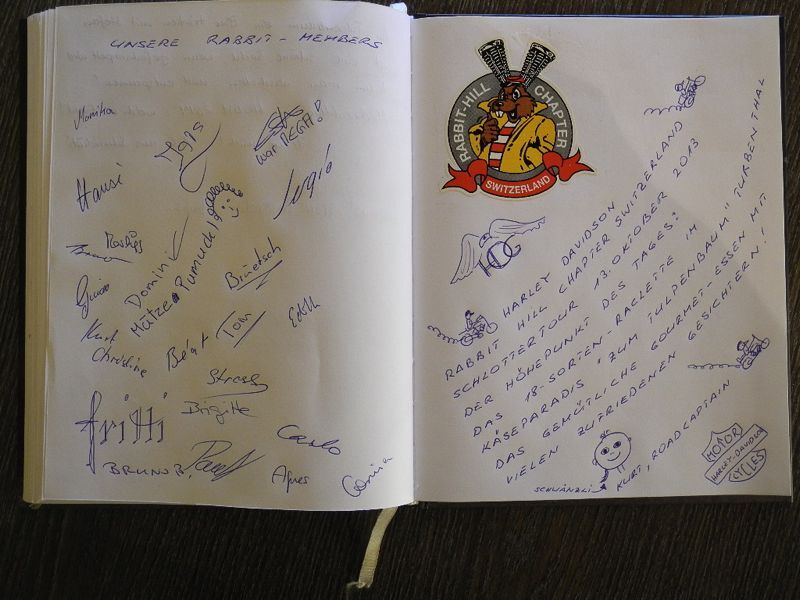 UNSERE RABBIT-MEMBERS
Monika
war MEGA!
Hansi
Sergio
Domini
Mätze
Pumuckl
Brüetsch
Kurt
Christine
Beat
Tom
Edth
Stress
Brigitte
fritti
BRUNO B.
Carlo
Agnes
RABBIT-HILL CHAPTER
SWITZERLAND
HOG
HARLEY DAVIDSON
RABBIT HILL CHAPTER SWITZERLAND
SCHLOTTERTOUR 13. OKTOBER 2013
DER HÖHEPUNKT DES TAGES:
DAS 18-SORTEN-RACLETTE IM
KÄSEPARADIS "ZUM TULPENBAUM" TURBENTHAL
DAS GEMÜTLICHE GOURMET-ESSEN MIT
VIELEN ZUFRIEDENEN GESICHTERN!
SCHWÄNZLI
KURT, ROADCAPTAIN
MOTOR
HARLEY-DAVIDSON
CYCLES